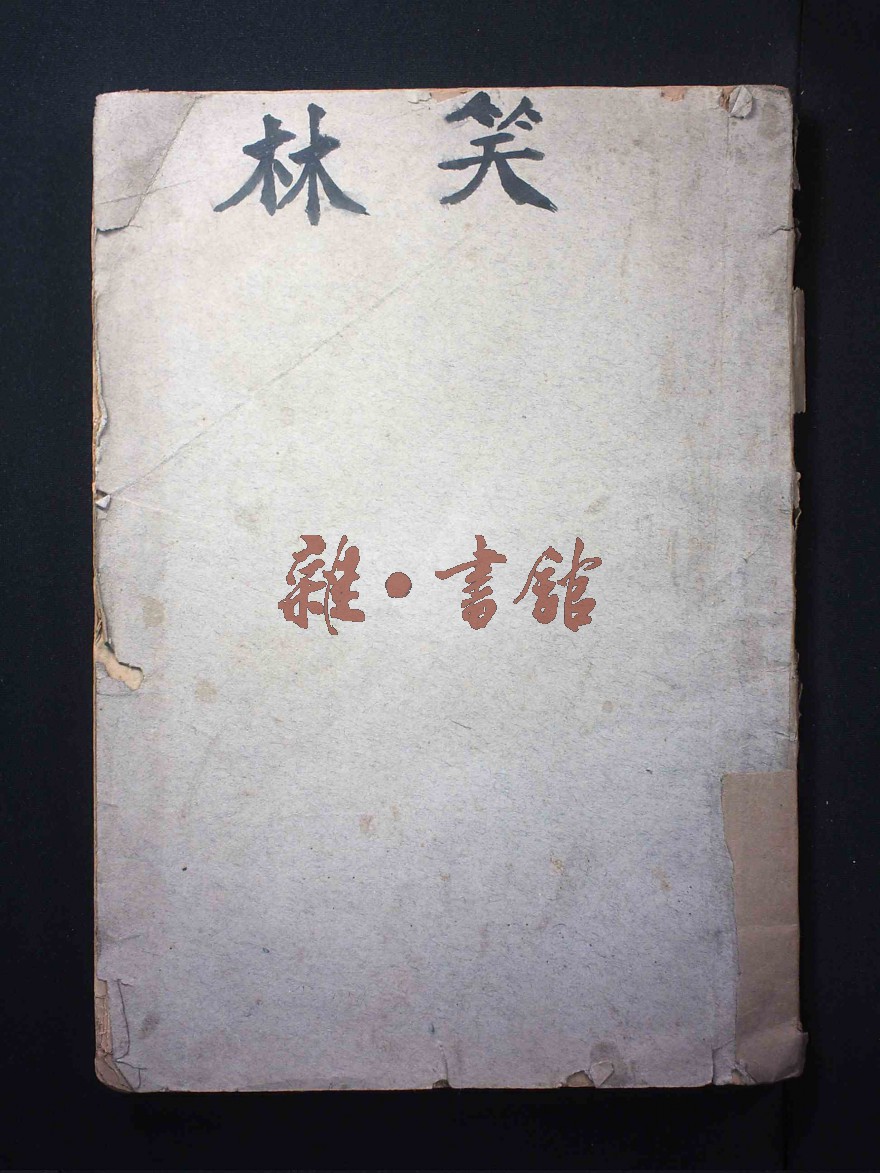 笑林
雜·書館